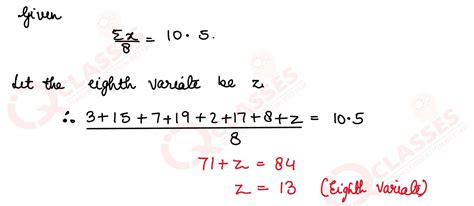 Given
Σx/8 = 10.5.
Let the eighth variate be z.
∴ 3+15+7+19+2+17+8+z / 8 = 10.5
71+z = 84
z = 13 (Eighth variate)
CLASSES
CLASSES
CLASSES